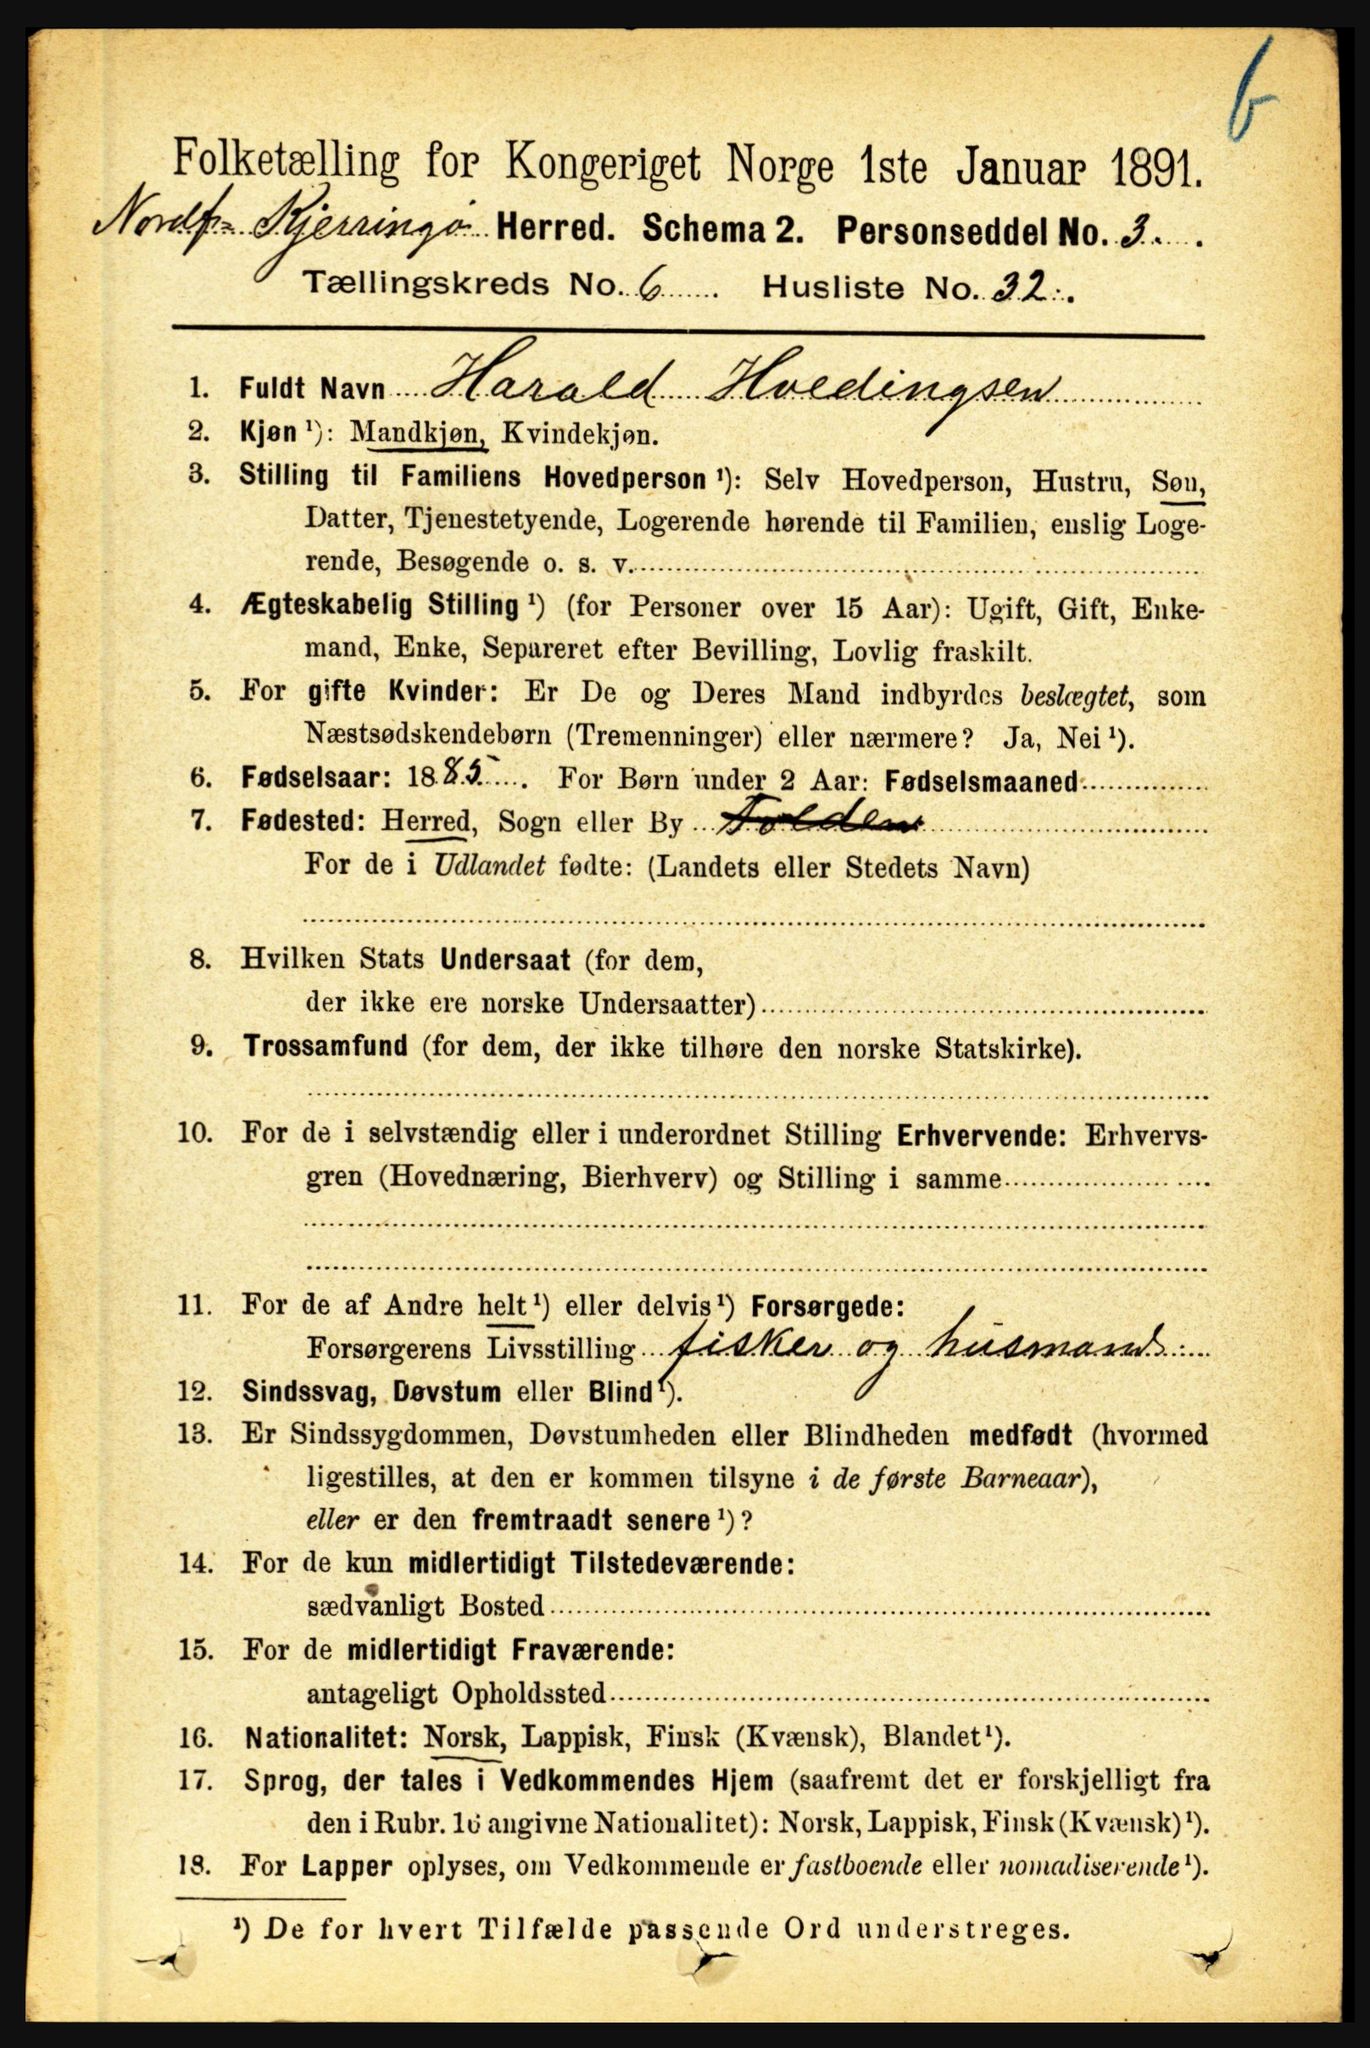 6
Folketælling for Kongeriget Norge 1ste Januar 1891.
Nordf= Kjerringø Herred. Schema 2. Personseddel No. 3.
Tællingskreds No. 6. Husliste No. 32.
1. Fuldt Navn Harald Hvedingsen
2. Kjøn ¹): Mandkjøn, Kvindekjøn.
3. Stilling til Familiens Hovedperson ¹): Selv Hovedperson, Hustru, Søn,
Datter, Tjenestetyende, Logerende hørende til Familien, enslig Loge-
rende, Besøgende o. s. v.
4. Ægteskabelig Stilling ¹) (for Personer over 15 Aar): Ugift, Gift, Enke-
mand, Enke, Separeret efter Bevilling, Lovlig fraskilt.
5. For gifte Kvinder: Er De og Deres Mand indbyrdes beslægtet, som
Næstsødskendebørn (Tremenninger) eller nærmere? Ja, Nei ¹).
6. Fødselsaar: 1885. For Børn under 2 Aar: Fødselsmaaned
7. Fødested: Herred, Sogn eller By Folden
For de i Udlandet fødte: (Landets eller Stedets Navn)
8. Hvilken Stats Undersaat (for dem,
der ikke ere norske Undersaatter)
9. Trossamfund (for dem, der ikke tilhøre den norske Statskirke).
10. For de i selvstændig eller i underordnet Stilling Erhvervende: Erhvervs-
gren (Hovednæring, Bierhverv) og Stilling i samme
11. For de af Andre helt ¹) eller delvis ¹) Forsørgede:
Forsørgerens Livsstilling fisker og husmand
12. Sindssvag, Døvstum eller Blind ¹).
13. Er Sindssygdommen, Døvstumheden eller Blindheden medfødt (hvormed
ligestilles, at den er kommen tilsyne i de første Barneaar),
eller er den fremtraadt senere ¹)?
14. For de kun midlertidigt Tilstedeværende:
sædvanligt Bosted
15. For de midlertidigt Fraværende:
antageligt Opholdssted
16. Nationalitet: Norsk, Lappisk, Finsk (Kvænsk), Blandet ¹).
17. Sprog, der tales i Vedkommendes Hjem (saafremt det er forskjelligt fra
den i Rubr. 16 angivne Nationalitet): Norsk, Lappisk, Finsk (Kvænsk) ¹).
18. For Lapper oplyses, om Vedkommende er fastboende eller nomadiserende ¹).
¹) De for hvert Tilfælde passende Ord understreges.